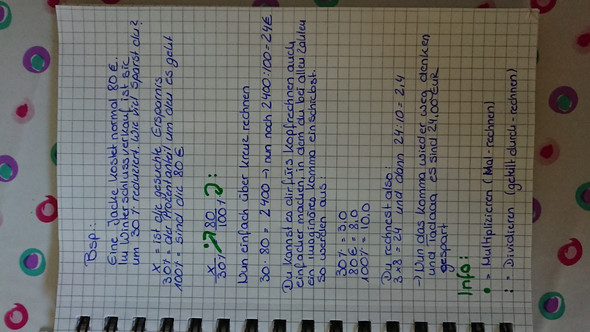 Bsp.:
Eine Jacke kostet normal 80 €.
Im Winterschlussverkauf ist sie
um 30% reduziert. Wie viel sparst du?
x = ist die gesuchte Ersparnis
30% = der Prozentanteil, um den es geht
100% = sind die 80 €
x 80
30% 100% :
Nun einfach über Kreuz rechnen
30 · 80 = 2400 → nun noch 2400 : 100 = 24€
Du kannst es dir fürs Kopfrechnen auch
einfacher machen, in dem du bei allen Zahlen
ein imaginäres Komma einschiebst.
So werden aus:
30% = 3,0
80€ = 8,0
100% = 10,0
Du rechnest also:
3 x 8 = 24 und dann 24 : 10 = 2,4
→ Nun das Komma wieder weg denken
und Tadaaa es sind 24,00 EUR
gespart
Info:
• = Multiplizieren (Mal-rechnen)
: = Dividieren (geteilt durch-rechnen)